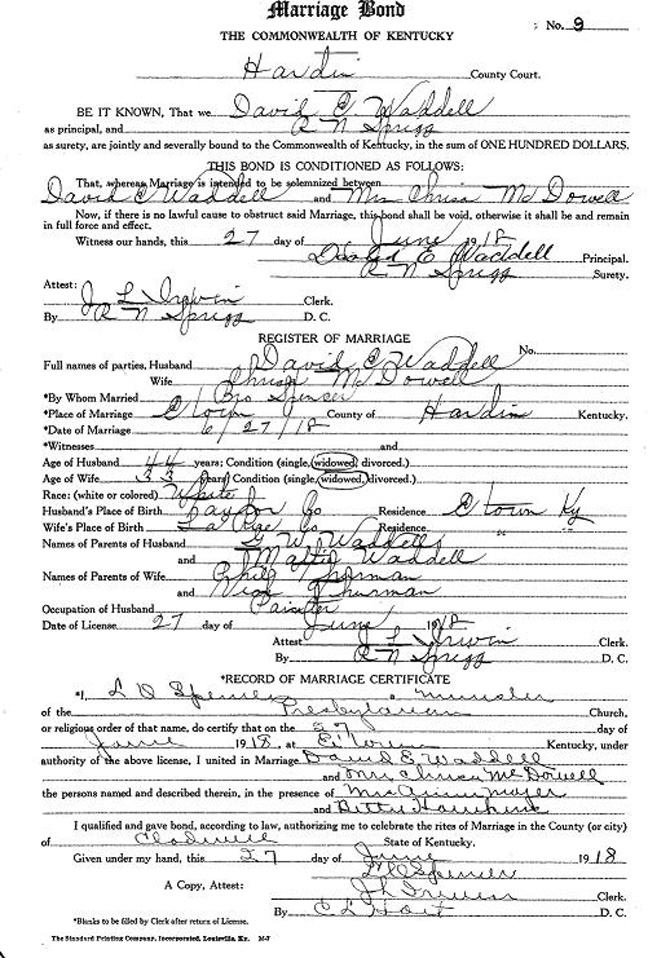 Marriage Bond
No. 9
THE COMMONWEALTH OF KENTUCKY
Hardin County Court.
BE IT KNOWN, That we David E. Waddell
as principal, and R N Sprigg
as surety, are jointly and severally bound to the Commonwealth of Kentucky, in the sum of ONE HUNDRED DOLLARS.
THIS BOND IS CONDITIONED AS FOLLOWS:
That, whereas Marriage is intended to be solemnized between
David E Waddell and Mrs Chrisa McDowell
Now, if there is no lawful cause to obstruct said Marriage, this bond shall be void, otherwise it shall be and remain
in full force and effect.
Witness our hands, this 27 day of June 1918
David E Waddell Principal.
R N Sprigg Surety.
Attest:
J L Irwin Clerk.
By R N Sprigg D. C.
REGISTER OF MARRIAGE
No.
Full names of parties, Husband David E Waddell
Wife Chrisa McDowell
*By Whom Married Bro Spencer
*Place of Marriage E town County of Hardin Kentucky.
*Date of Marriage 6/27/18
*Witnesses and
Age of Husband 44 years; Condition (single, widowed, divorced.)
Age of Wife 33 years; Condition (single, widowed, divorced.)
Race: (white or colored) White
Husband's Place of Birth Taylor Co Residence E town Ky
Wife's Place of Birth La Rue Co Residence " "
Names of Parents of Husband G W Waddell
and Mattie Waddell
Names of Parents of Wife Thurman
and Thurman
Occupation of Husband Painter
Date of License 27 day of June 1918
Attest J L Irwin Clerk.
By R N Sprigg D. C.
*RECORD OF MARRIAGE CERTIFICATE
*I, L O Spencer a minister
of the Presbyterian Church,
or religious order of that name, do certify that on the 27 day of
June 1918, at E'Town Kentucky, under
authority of the above license, I united in Marriage David E Waddell
and Mrs Chrisa McDowell
the persons named and described therein, in the presence of Mrs
and Hawkins
I qualified and gave bond, according to law, authorizing me to celebrate the rites of Marriage in the County (or city)
of State of Kentucky.
Given under my hand, this 27 day of June 1918
L O Spencer
A Copy, Attest: J L Irwin Clerk.
By C L D. C.
*Blanks to be filled by Clerk after return of License.
The Standard Printing Company, Incorporated, Louisville, Ky. M-7